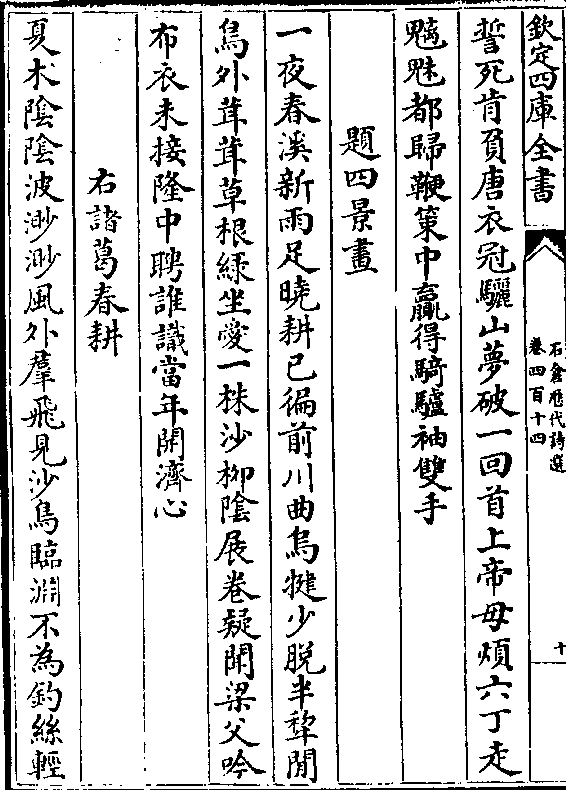 欽定四庫全書
石倉歷代詩選
卷四百十四
十
誓死肯負唐衣冠驪山夢破一回首上帝毋煩六丁走
魑魅都歸鞭策中贏得騎驢袖雙手
題四景畫
一夜春溪新雨足曉耕已徧前川曲烏犍少脫半犂閒
烏外茸茸草根緑坐愛一株沙柳陰展卷疑聞梁父吟
布衣未接隆中聘誰識當年開濟心
右諸葛春耕
夏木陰陰波渺渺風外羣飛見沙鳥臨淵不為釣絲輕